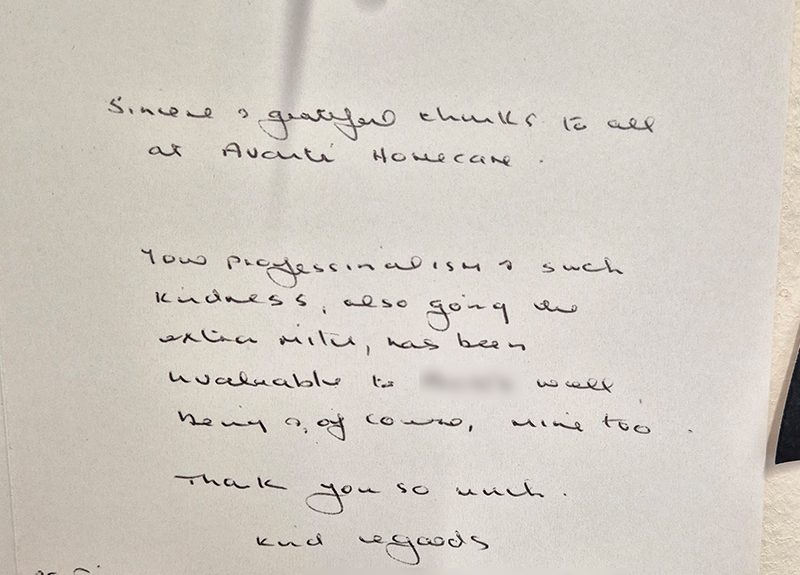 Sincere & grateful thanks to all
at Avanti Homecare.
Your professionalism & such
kindness, also going the
extra mile, has been
invaluable to well
being &, of course, mine too.
Thank you so much.
Kind regards